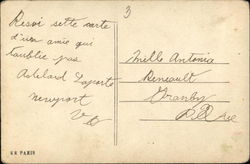 3
Resoi sette carte
d'un amie qui
t'oublie pas
Adelard Laporte
Newport
Vt
Melle Antonia
Reneault
Granby
P.Q
68 PARIS